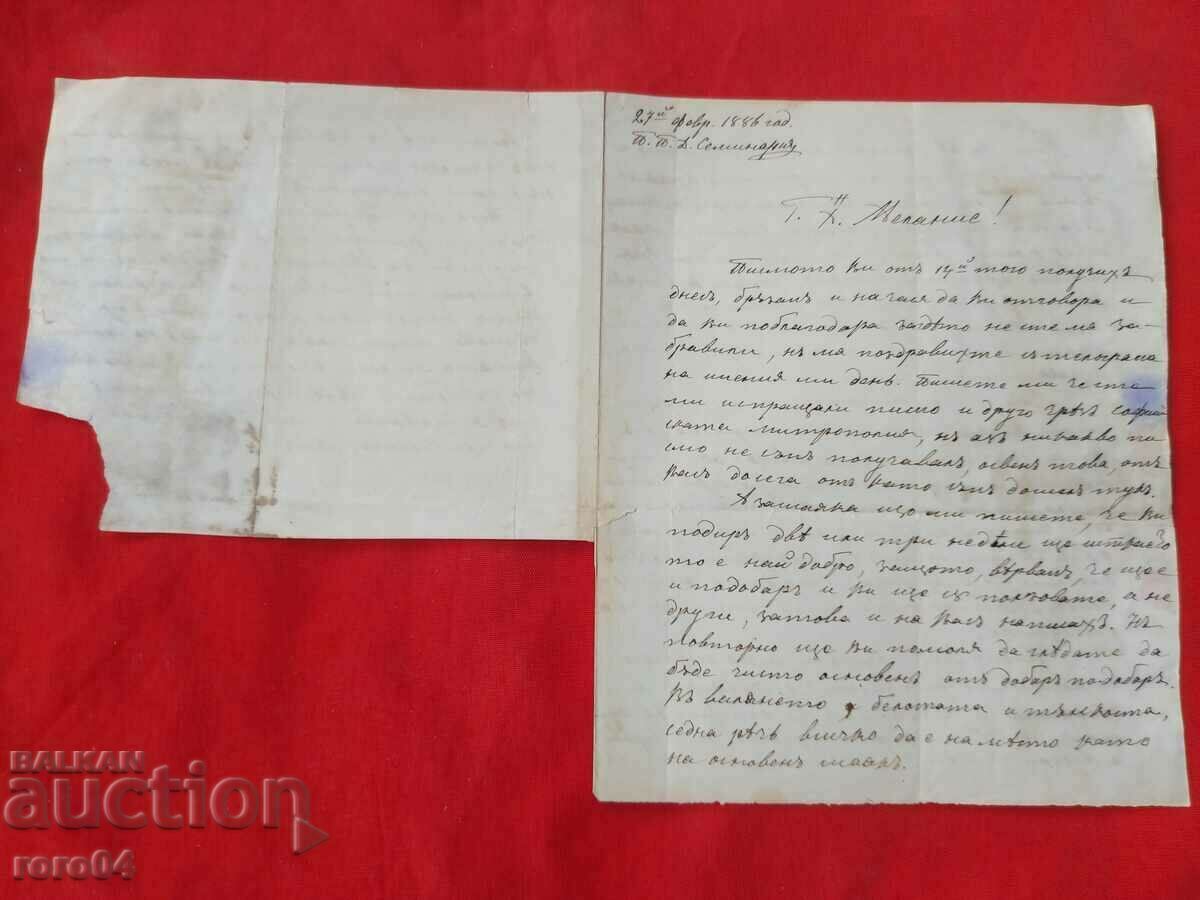 27ий февр. 1886 год.
Т. П. Д. Семинария
Г. Н. Д. Мелание!
Писмото Ви отъ 14ий того получихъ
днесъ, бързамъ и начася да Ви отговора и
да Ви поблагодара загдѣто не сте мя за-
бравили, нъ мя поздравихте съ телеграма
на имения ми день. Пишете ми че сте
ми испращали писмо и друго чрѣзъ Софий
ската Митрополия, нъ азъ никакво пи
смо не съмъ получавалъ, освенъ това, отъ
Васъ досега отъ като съмъ дошелъ тукъ.
А за шаяка що ми пишете, че Ви
подиръ двѣ или три недѣли ще
то е най добро, защото, вѣрвамъ, че ще е
и подобаръ и Ви ще го ползовате, а не
други, затова и на Васъ написахъ. Нъ
повторно ще Ви помоля да глѣдате да
бѫде чисто основенъ отъ добаръ подобаръ.
Въ валянето, белотата и тънкоста,
с една рѣчъ всичко да е на мѣсто като
на основенъ шаякъ.
BALKAN
auction
roro04